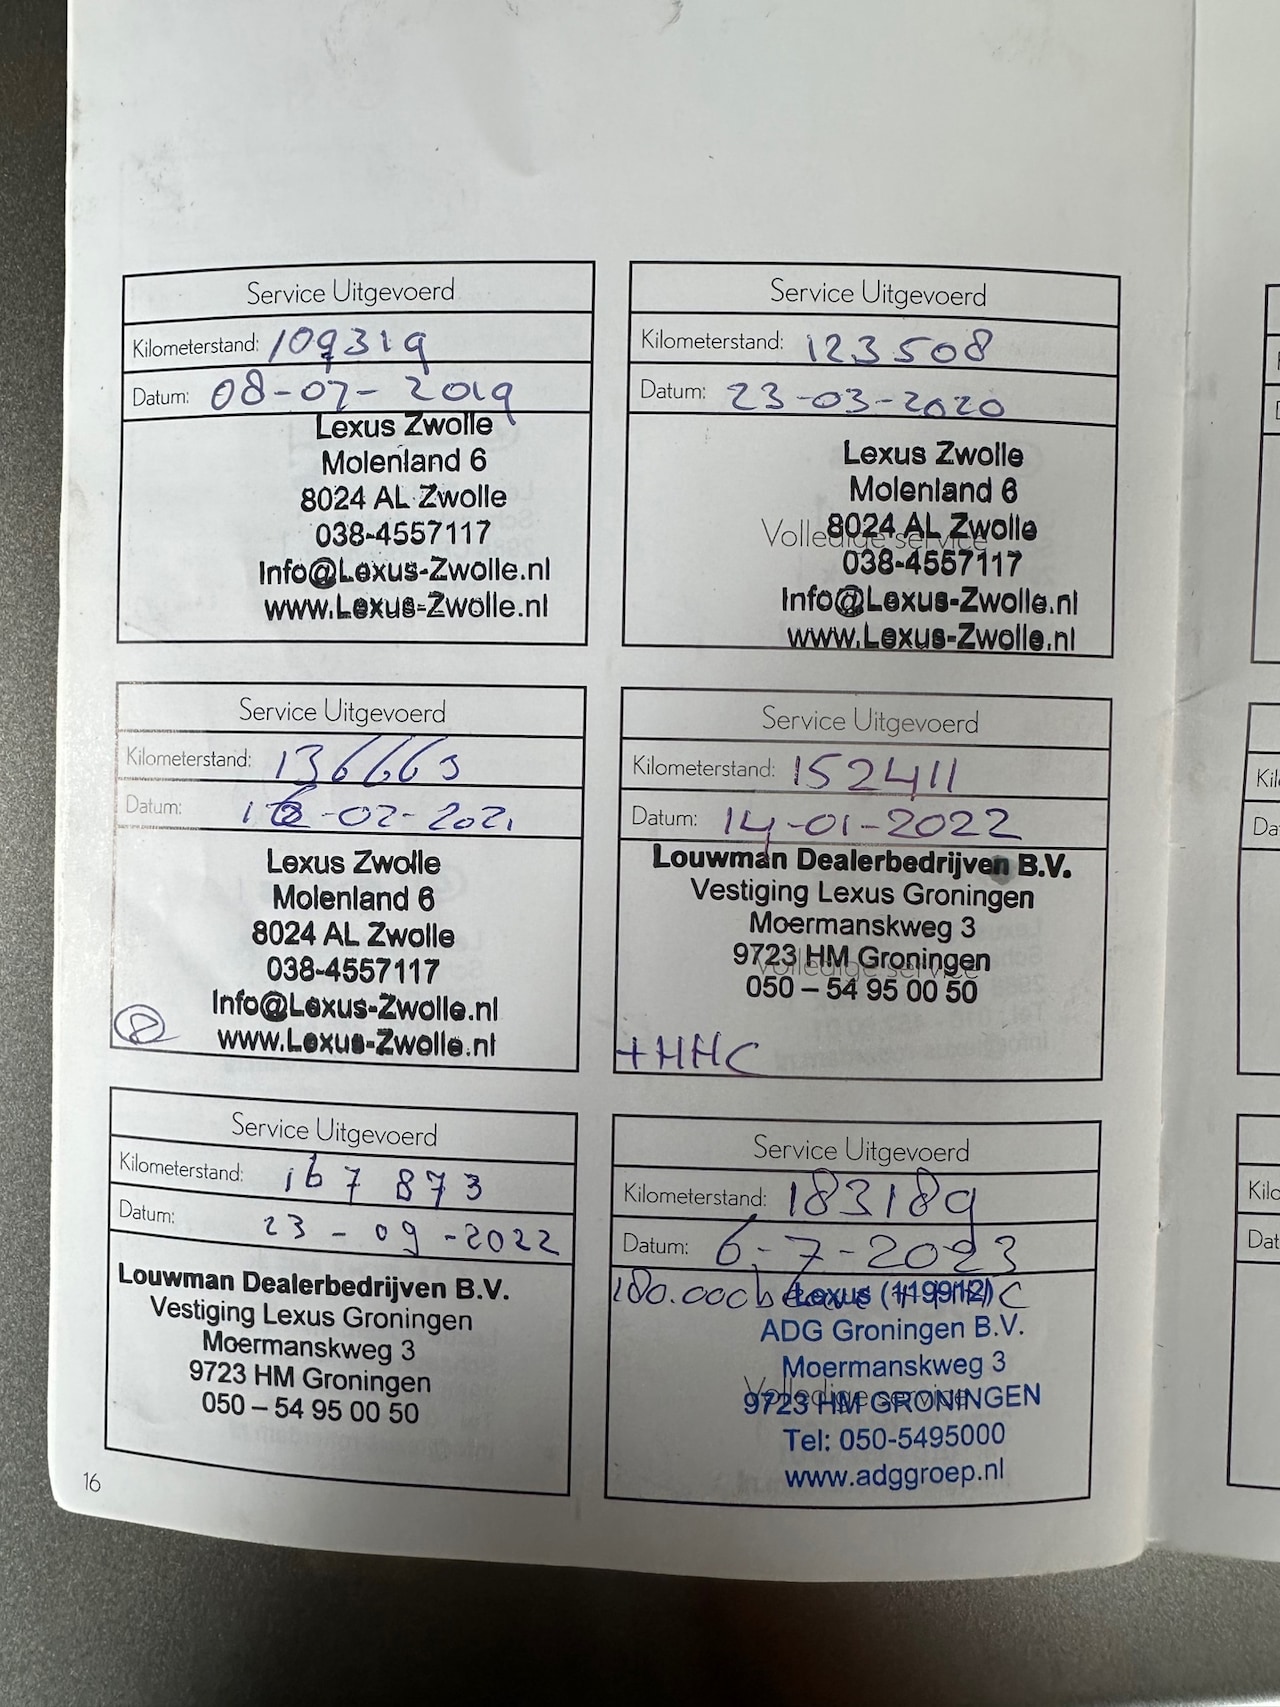 Service Uitgevoerd
Kilometerstand: 109319
Datum: 08-07-2019
Lexus Zwolle
Molenland 6
8024 AL Zwolle
038-4557117
Info@Lexus-Zwolle.nl
www.Lexus-Zwolle.nl
Service Uitgevoerd
Kilometerstand: 123508
Datum: 23-03-2020
Lexus Zwolle
Molenland 6
8024 AL Zwolle
Volledige service
038-4557117
Info@Lexus-Zwolle.nl
www.Lexus-Zwolle.nl
Service Uitgevoerd
Kilometerstand: 136663
Datum: -02-2021
Lexus Zwolle
Molenland 6
8024 AL Zwolle
038-4557117
Info@Lexus-Zwolle.nl
www.Lexus-Zwolle.nl
Service Uitgevoerd
Kilometerstand: 152411
Datum: 14-01-2022
Louwman Dealerbedrijven B.V.
Vestiging Lexus Groningen
Moermanskweg 3
9723 HM Groningen
Volledige service
050 – 54 95 00 50
+HHC
Service Uitgevoerd
Kilometerstand: 167 873
Datum: 23 - 09 - 2022
Louwman Dealerbedrijven B.V.
Vestiging Lexus Groningen
Moermanskweg 3
9723 HM Groningen
050 – 54 95 00 50
Service Uitgevoerd
Kilometerstand: 183189
Datum: 6-7-2023
180.000 beurt + HHC
Lexus (119912)
ADG Groningen B.V.
Moermanskweg 3
Volledige service
9723 HM GRONINGEN
Tel: 050-5495000
www.adggroep.nl
16